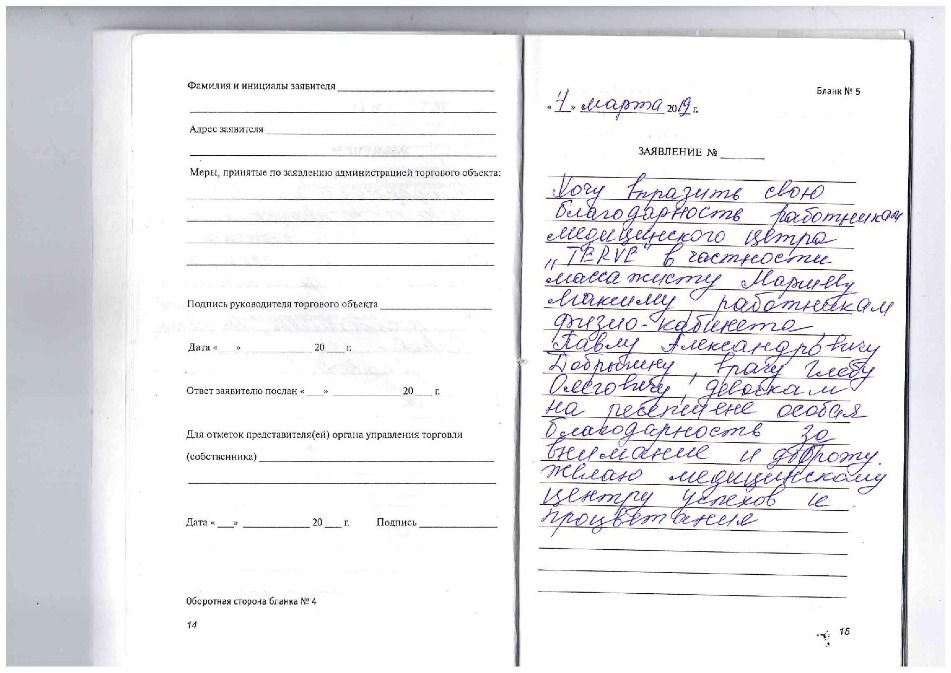 Фамилия и инициалы заявителя
Адрес заявителя
Меры, принятые по заявлению администрацией торгового объекта:
Подпись руководителя торгового объекта
Дата « » 20 г.
Ответ заявителю послан « » 20 г.
Для отметок представителя(ей) органа управления торговли
(собственника)
Дата « » 20 г. Подпись
Оборотная сторона бланка № 4
14
Бланк № 5
« » марта 2019 г.
ЗАЯВЛЕНИЕ №
Хочу выразить свою
благодарность работникам
медицинского цетра
„TERVE" в частности
массажисту
Максиму, работникам
физио-кабинета,
Павлу Александровичу
Добрынину, врачу Глебу
Олеговичу, девочкам
на ресепшене особая
благодарность за
внимание и доброту.
Желаю медицинскому
центру успехов и
процветания
15